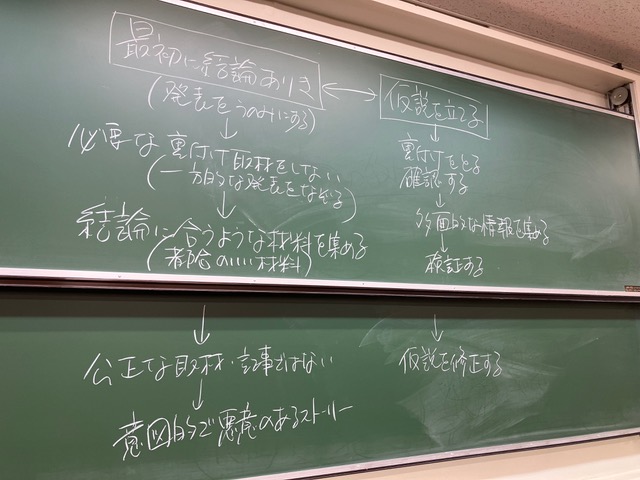 最初に結論ありき
(発表をうのみにする)
↓
必要な裏付け取材をしない
(一方的な発表をなぞる)
↓
結論に合うような材料を集める
(都合のいい材料)
↓
公正な取材・記事ではない
↓
意図的で悪意のあるストーリー
↔
仮説を立てる
↓
裏付けをとる
確認する
↓
多面的な情報を集める
↓
検証する
↓
仮説を修正する